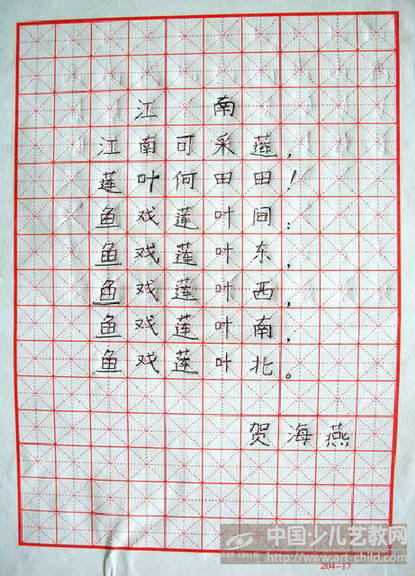 江南
江南可采莲，
莲叶何田田！
鱼戏莲叶间：
鱼戏莲叶东，
鱼戏莲叶西，
鱼戏莲叶南，
鱼戏莲叶北。
贺海燕
中国·少儿艺教网
ART-CHILD.COM
http://www.art-child.com
204-17